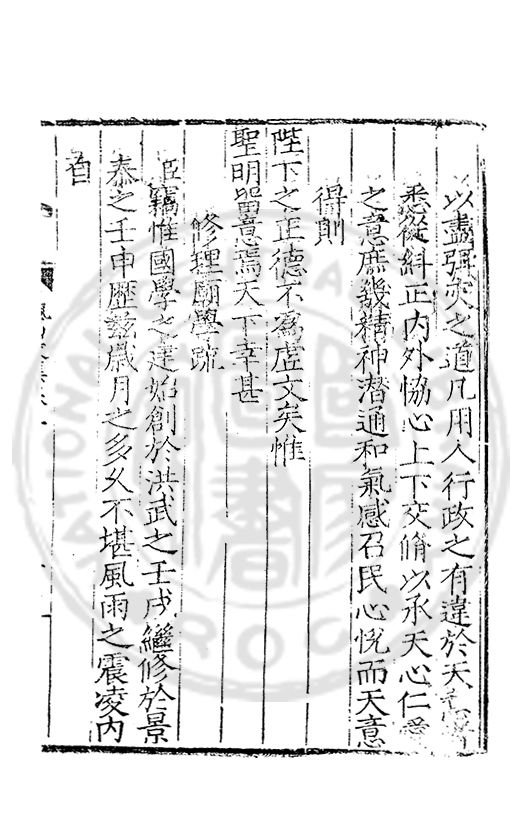 以盡弭災之道凡用人行政之有違於天者
悉從糾正内外恊心上下交脩以承天心仁愛
之意庶幾精神潜通和氣感召民心恱而天意
得則
陛下之正德不爲虚文矣惟
聖明留意焉天下幸甚
修理廟學疏
臣竊惟國學之建始創於洪武之壬戌繼修於景
泰之壬申歴兹嵗月之多久不堪風雨之震凌内
自